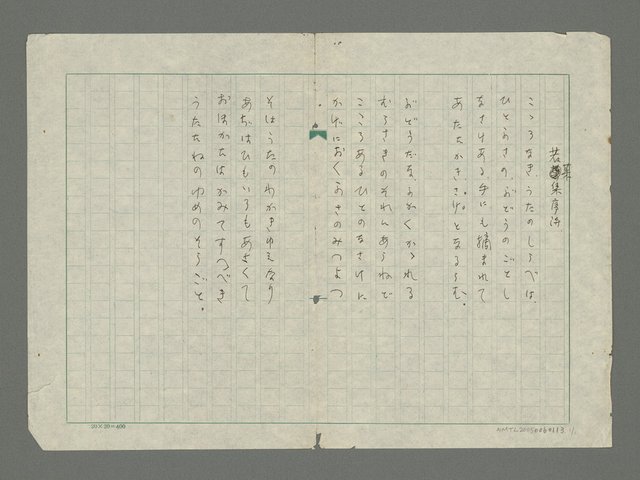 若菜集序詩
こゝろなきうたのしらべは
ひとふさのぶどうのごとし
なさけある手にも摘まれて
あたたかきさけとなるらむ。
ぶどうだなふかくかゝれる
むらさきのそれにあらねど
こころあるひとのなさけに
かげにおくふさのみつよつ
そはうたのわかきゆえなり
あぢはひもいろもあさくて
おほかたはかみてすつべき
うたたねのゆめのそらごと。
20×20=400
NMTL20050060113